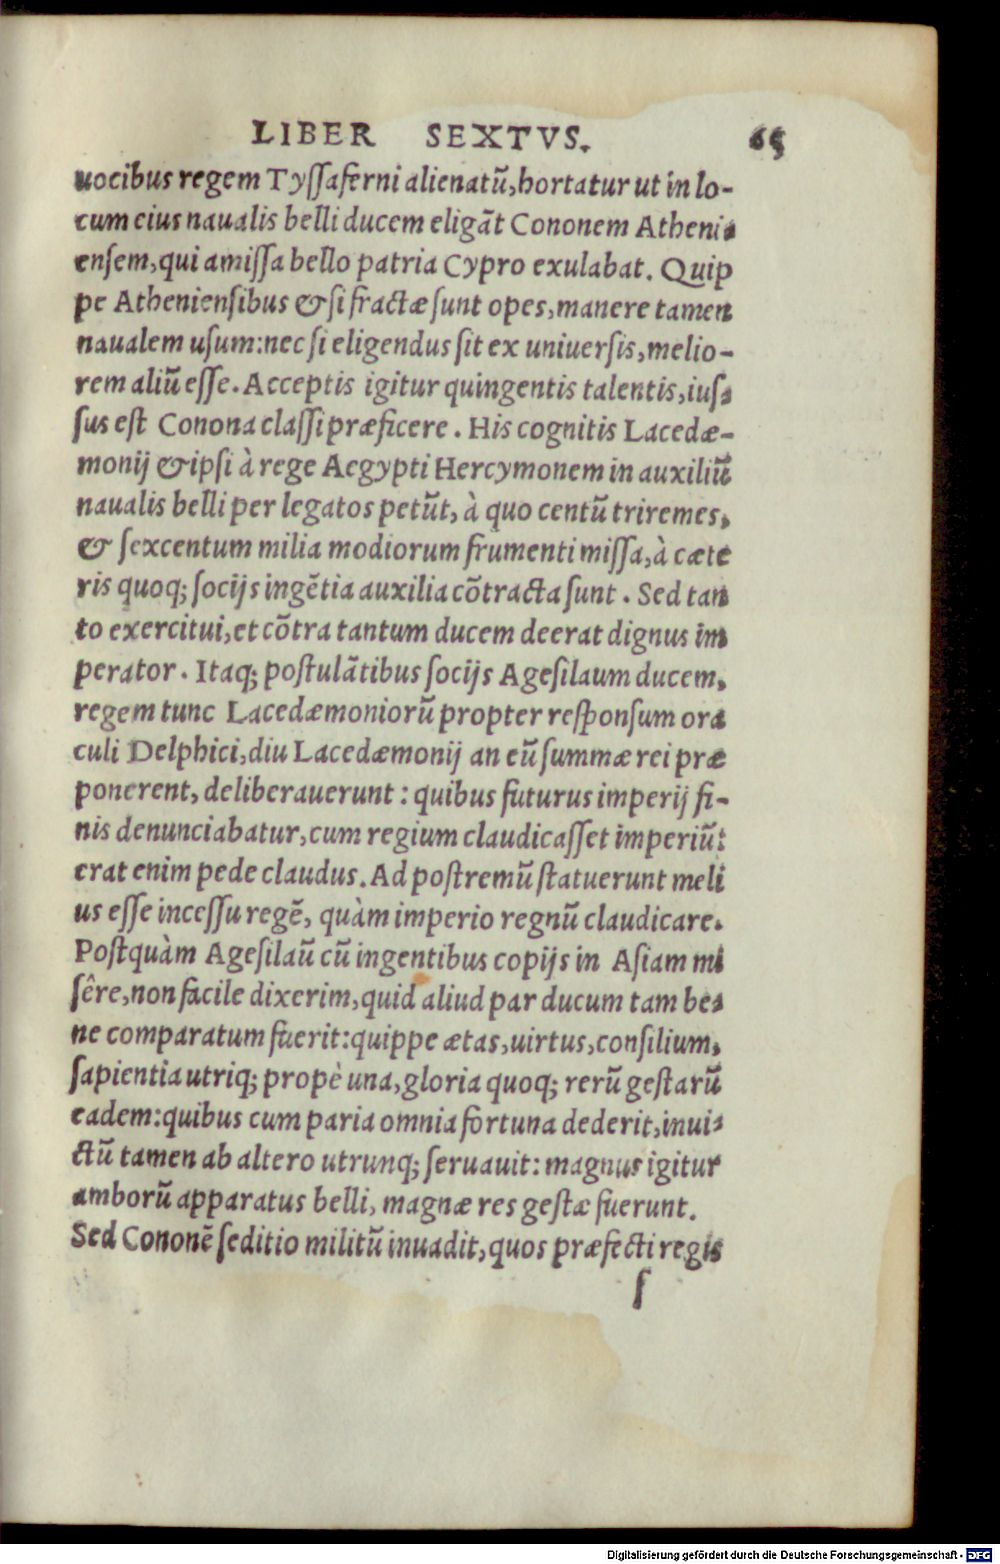 LIBER SEXTVS. 65
uocibus regem Tyſſaferni alienatũ, hortatur ut in lo-
cum eius naualis belli ducem eligãt Cononem Atheni-
enſem, qui amiſſa bello patria Cypro exulabat. Quip
pe Athenienſibus & ſi fractæ ſunt opes, manere tamen
naualem uſum: nec ſi eligendus ſit ex uniuerſis, melio-
rem aliũ eſſe. Acceptis igitur quingentis talentis, iuſ-
ſus eſt Conona claſſi præficere. His cognitis Lacedæ-
monij & ipſi à rege Aegypti Hercymonem in auxiliũ
naualis belli per legatos petũt, à quo centũ triremes,
& ſexcentum milia modiorum frumenti miſſa, à cæte
ris quoq; ſocijs ingẽtia auxilia cõtracta ſunt. Sed tan
to exercitui, et cõtra tantum ducem deerat dignus im
perator. Itaq; poſtulãtibus ſocijs Ageſilaum ducem,
regem tunc Lacedæmoniorũ propter reſponſum ora
culi Delphici, diu Lacedæmonij an eũ ſummæ rei præ
ponerent, deliberauerunt: quibus futurus imperij fi-
nis denunciabatur, cum regium claudicaſſet imperiũ:
erat enim pede claudus. Ad poſtremũ ſtatuerunt meli
us eſſe inceſſu regẽ, quàm imperio regnũ claudicare.
Poſtquàm Ageſilaũ cũ ingentibus copijs in Aſiam mi
ſêre, non facile dixerim, quid aliud par ducum tam be-
ne comparatum fuerit: quippe ætas, uirtus, conſilium,
ſapientia utriq; propè una, gloria quoq; rerũ geſtarũ
eadem: quibus cum paria omnia fortuna dederit, inui-
ctũ tamen ab altero utrunq; ſeruauit: magnus igitur
amborũ apparatus belli, magnæ res geſtæ fuerunt.
Sed Cononẽ ſeditio militũ inuadit, quos præfecti regis
ſ
Digitalisierung gefördert durch die Deutsche Forschungsgemeinschaft - DFG